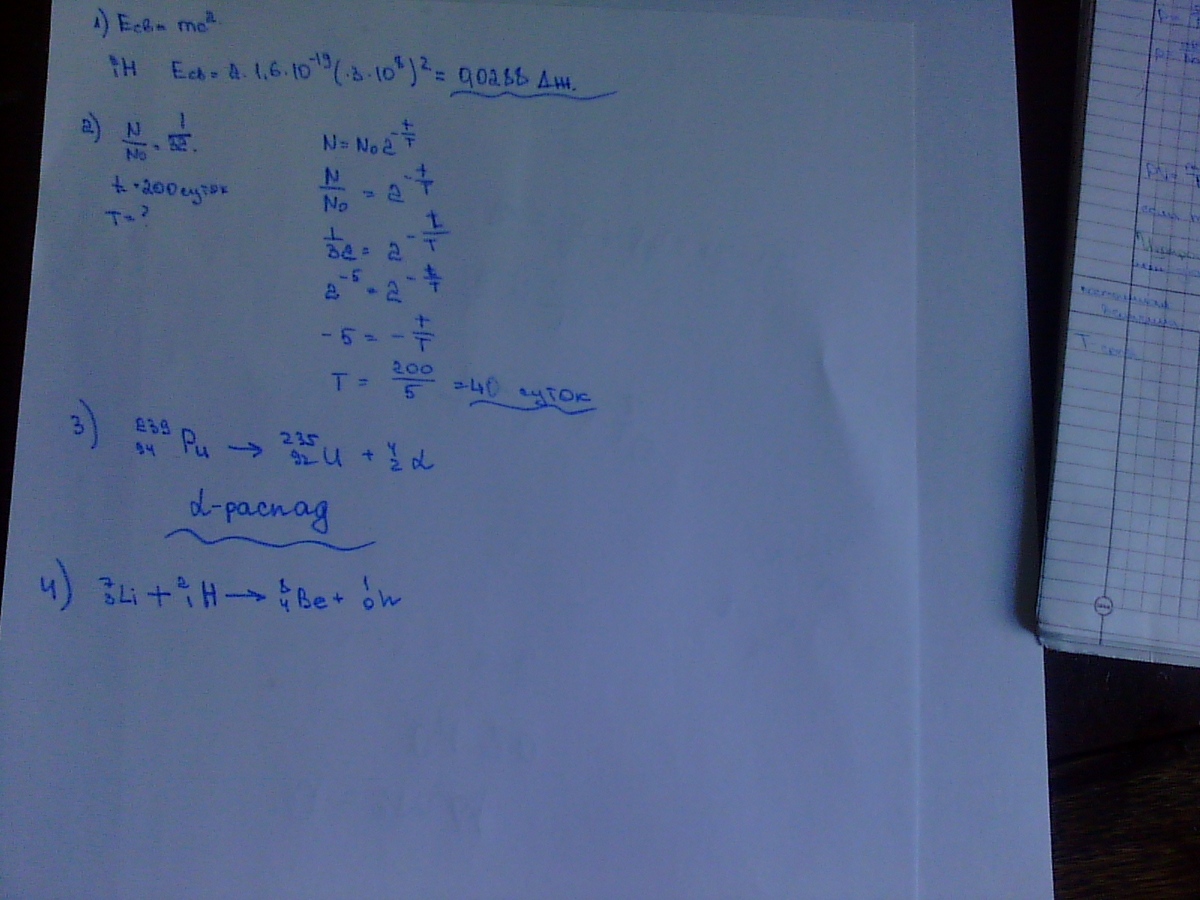 1) Eсв = mc²
²₁H Eсв = 2·1,6·10⁻¹⁹(·3·10⁸)² = 0,0288 Дж.
2) N/N₀ = 1/32.
t = 200 суток
T = ?
N = N₀2^(-t/T)
N/N₀ = 2^(-t/T)
1/32 = 2^(-t/T)
2⁻⁵ = 2^(-t/T)
-5 = -t/T
T = 200/5 = 40 суток
3) ²³⁹₉₄Pu → ²³⁵₉₂U + ⁴₂α
α-распад
4) ⁷₃Li + ²₁H → ⁸₄Be + ¹₀n